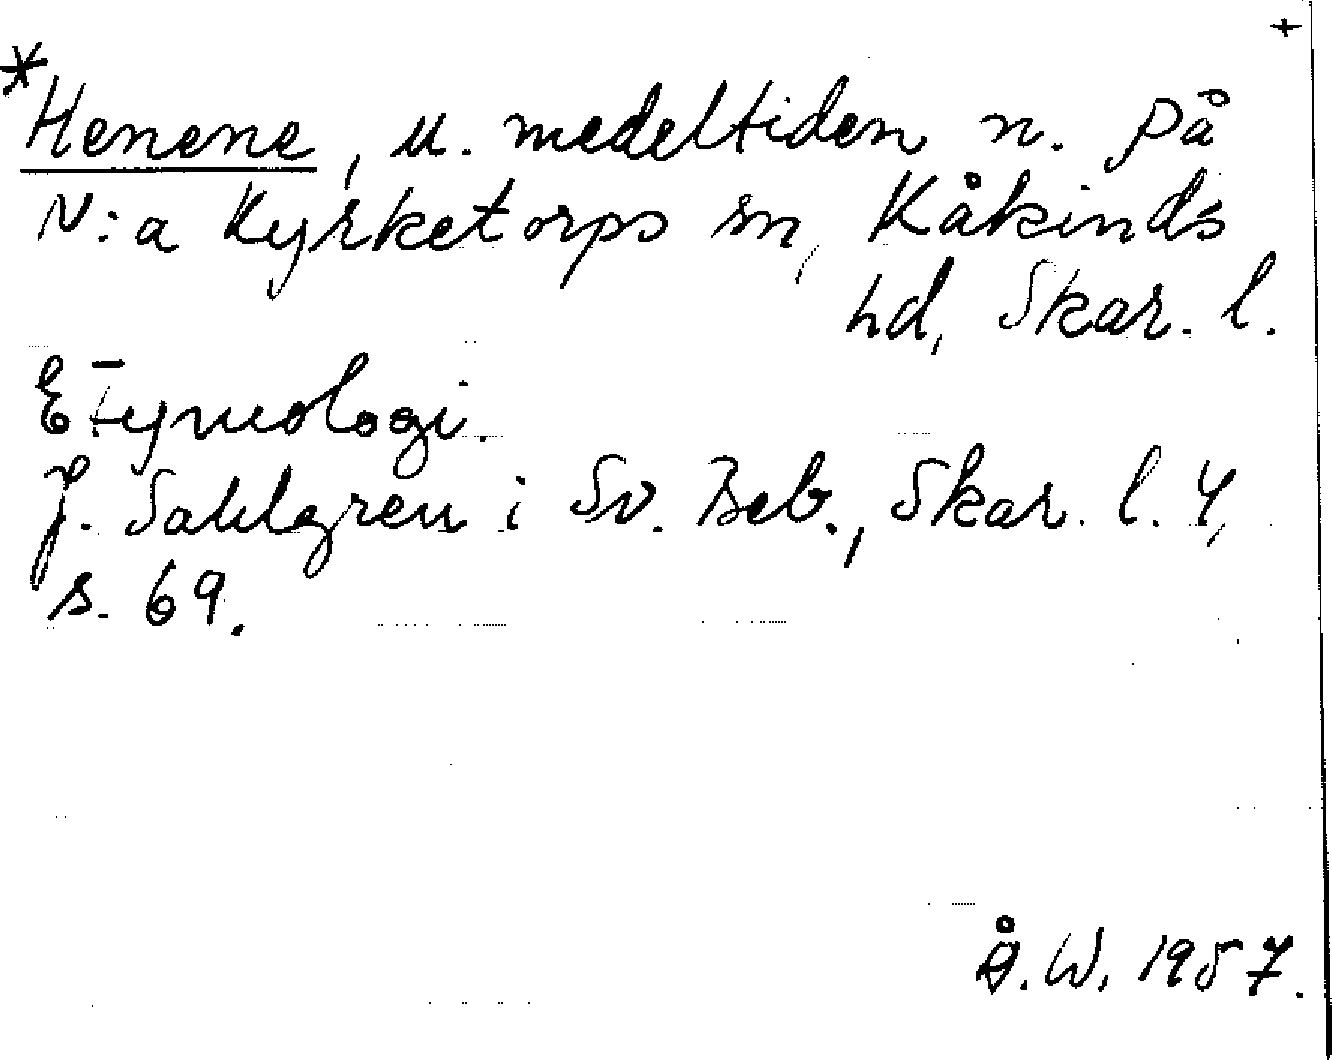 +
*Henene, u. medeltiden n. på
N:a Kyrketorps sn, Kåkinds
hd, Skar. l.
Etymologi.
J. Sahlgren i Sv. Beb., Skar. l. 4,
s. 69.
Å.W. 1957.